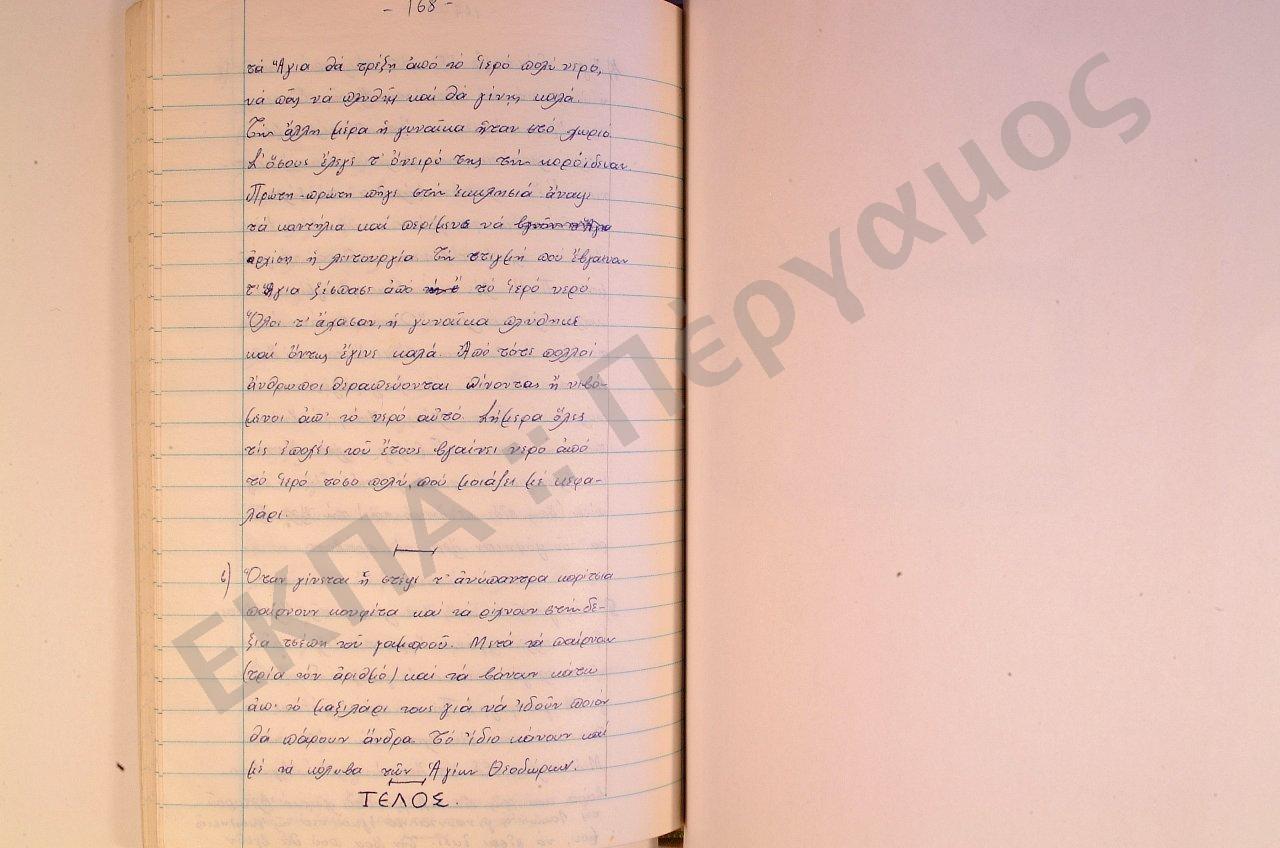 - 168 -
τά Ἅγια θά τρέξη ἀπό τό Ἱερό πολύ νερό,
νά πᾶς νά πλυθῆς καί θά γίνης καλά.
Τήν ἄλλη μέρα ἡ γυναῖκα ἦταν στό χωριό.
Σ' ὅσους ἔλεγε τ' ὄνειρό της τήν κορόιδευαν.
Πρώτη-πρώτη πῆγε στήν ἐκκλησιά ἄναψε
τά καντήλια καί περίμενε νά
ἀρχίση ἡ λειτουργία. Τήν στιγμή πού ἔβγαιναν
τ' Ἅγια ξέσπασε ἀπό τό Ἱερό νερό.
Ὅλοι τ' ἄχασαν, ἡ γυναῖκα πλύθηκε
καί ὄντως ἔγινε καλά. Ἀπό τότε πολλοί
ἄνθρωποι θεραπεύονται πίνοντας ἤ νιβό-
μενοι ἀπ' τό νερό αὐτό. Σήμερα ὅλες
τίς ἐποχές τοῦ ἔτους βγαίνει νερό ἀπό
τό Ἱερό τόσο πολύ, πού μοιάζει μέ κεφα-
λάρι.
Ὅταν γίνεται ἡ στέψι τ' ἀνύπαντρα κορίτσια
παίρνουν κουφέτα καί τά ρίχνουν στήν δε-
ξιά τσέπη τοῦ γαμπροῦ. Μετά τά παίρνουν
(τρία τόν ἀριθμό) καί τά βάνουν κάτω
ἀπ' τό μαξιλάρι τους γιά νά ἰδοῦν ποιόν
θά πάρουν ἄνδρα. Τό ἴδιο κάνουν καί
μέ τά κόλυβα τῶν Ἁγίων Θεοδώρων.
ΤΕΛΟΣ.
ΕΚΠΑ :: Πέργαμος